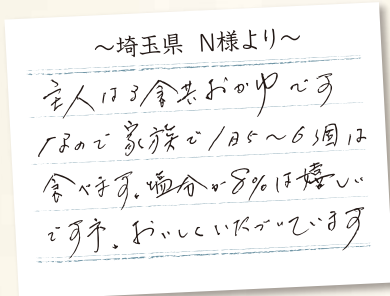 ～埼玉県 N様より～
主人は3食共おかゆです
なので家族で1日5～6個は
食べます。塩分が8%は嬉しい
です。おいしくいただいています